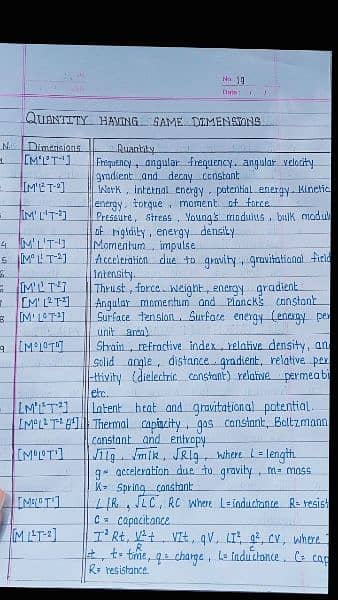 No. 19
Date: / /
QUANTITY HAVING SAME DIMENSIONS
N. Dimensions Quantity
[M⁰L⁰T⁻¹] Frequency, angular frequency, angular velocity
gradient and decay constant
[M¹L²T⁻²] Work, internal energy, potential energy, Kinetic
energy, torque, moment of force
[M¹L⁻¹T⁻²] Pressure, stress, Young's modulus, bulk modul
of rigidity, energy density
4 [M¹L¹T⁻¹] Momentum, impulse
5 [M⁰L¹T⁻²] Acceleration due to gravity, gravitational field
Intensity.
[M¹L¹T⁻²] Thrust, force, weight, energy gradient
7 [M¹L²T⁻¹] Angular momentum and Planck's constant
8 [M¹L⁰T⁻²] Surface tension, Surface energy (energy per
unit area)
9 [M⁰L⁰T⁰] Strain, refractive index, relative density, an
solid angle, distance gradient, relative per
-ttivity (dielectric constant) relative permeabi
etc.
[M⁰L²T⁻²] Latent heat and gravitational potential.
[M¹L²T⁻²θ⁻¹] Thermal capacity, gas constant, Boltzmann
constant and entropy
[M⁰L⁰T¹] √l/g, √m/k, √R/g, where L = length
g = acceleration due to gravity, m = mass
K = Spring constant
[M⁰L⁰T¹] L/R, √LC, RC Where L = inductance R = resist
C = capacitance
[M L²T⁻²] I²Rt, V²/R t, VIt, qV, LI², q²/C, CV, where
t, t = time, q = charge, L = inductance, C = cap
R = resistance.